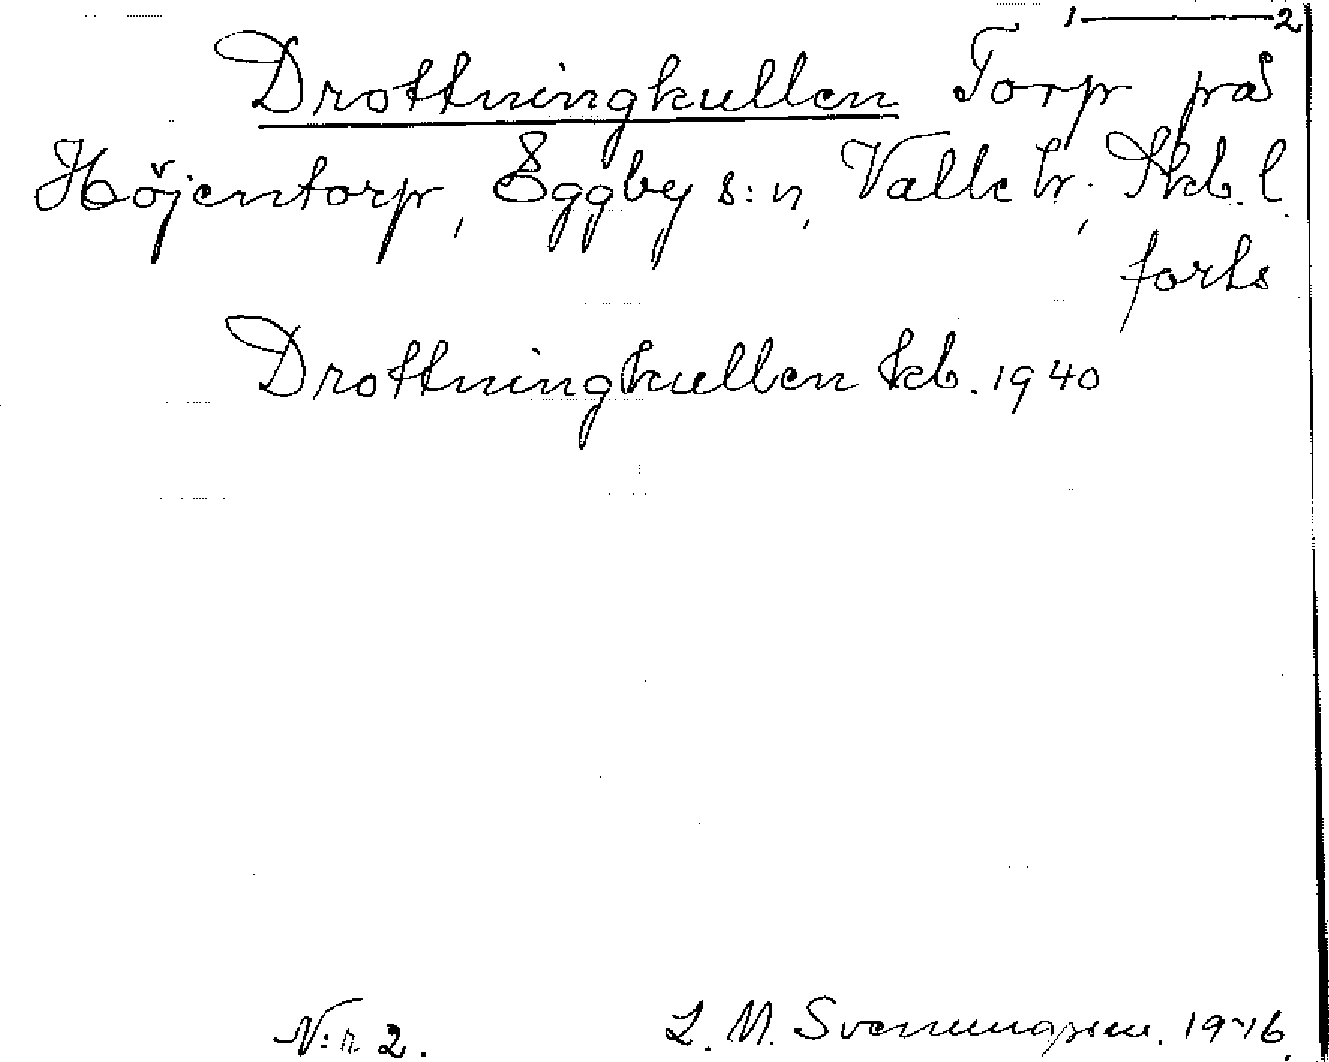 1——2
Drottningkullen Torp på
Höjentorp, Eggby s:n, Valle hr, Skb. l.
forts
Drottningkullen kb. 1940
N:r 2. L. M. Svenungsson. 1946